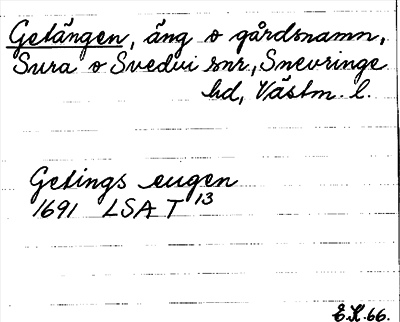 Getängen, äng o gårdsnamn,
Sura o Svedvi snr, Snevringe
hd, Västm. l.
Getings eugen
1691 LSA T 13
E.K. 66.